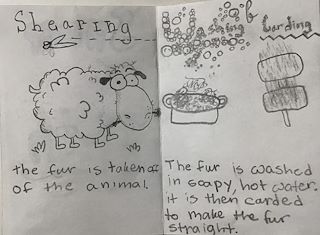 Shearing
the fur is taken off
of the animal.
Washing
Carding
The fur is washed
in soapy, hot water.
it is then carded
to make the fur
straight.